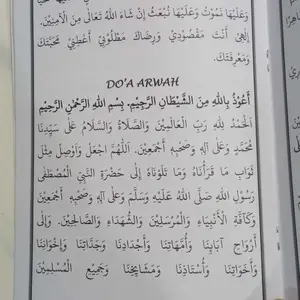 وَعَلَيْهَا نَمُوْتُ وَعَلَيْهَا نُبْعَثُ إِنْ شَاءَ اللهُ تَعَالَى مِنَ الْآمِنِيْنَ.
إِلٰهِيْ أَنْتَ مَقْصُوْدِيْ وَرِضَاكَ مَطْلُوْبِيْ أَعْطِنِيْ مَحَبَّتَكَ
وَمَعْرِفَتَكَ.
DO'A ARWAH
أَعُوْذُ بِاللهِ مِنَ الشَّيْطَانِ الرَّجِيْمِ. بِسْمِ اللهِ الرَّحْمٰنِ الرَّحِيْمِ
اَلْحَمْدُ لِلهِ رَبِّ الْعَالَمِيْنَ وَالصَّلَاةُ وَالسَّلَامُ عَلَى سَيِّدِنَا
مُحَمَّدٍ وَعَلَى آلِهِ وَصَحْبِهِ أَجْمَعِيْنَ. اَللّٰهُمَّ اجْعَلْ وَأَوْصِلْ مِثْلَ
ثَوَابِ مَا قَرَأْنَاهُ وَمَا تَلَوْنَاهُ إِلَى حَضْرَةِ النَّبِيِّ الْمُصْطَفَى
رَسُوْلِ اللهِ صَلَّى اللهُ عَلَيْهِ وَسَلَّمَ وَعَلَى آلِهِ وَصَحْبِهِ أَجْمَعِيْنَ
وَكَآفَّةِ الْأَنْبِيَاءِ وَالْمُرْسَلِيْنَ وَالشُّهَدَاءِ وَالصَّالِحِيْنَ. وَإِلَى
أَرْوَاحِ آبَائِنَا وَأُمَّهَاتِنَا وَأَجْدَادِنَا وَجَدَّاتِنَا وَإِخْوَانِنَا
وَأَخَوَاتِنَا وَأُسْتَاذِنَا وَمَشَايِخِنَا وَجَمِيْعِ الْمُسْلِمِيْنَ